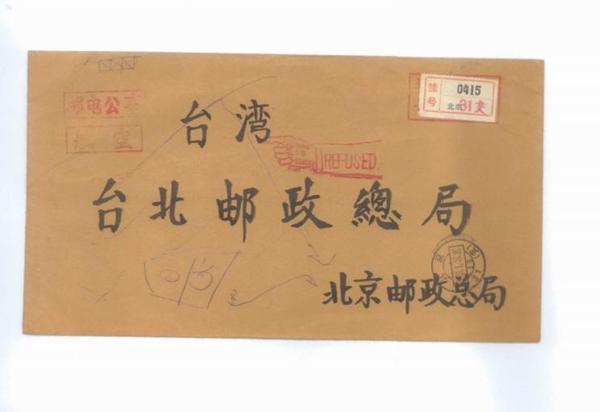 邮电公事
航空
挂号
0415
北京31支
台湾
REFUSED.
台北邮政總局
北京邮政总局